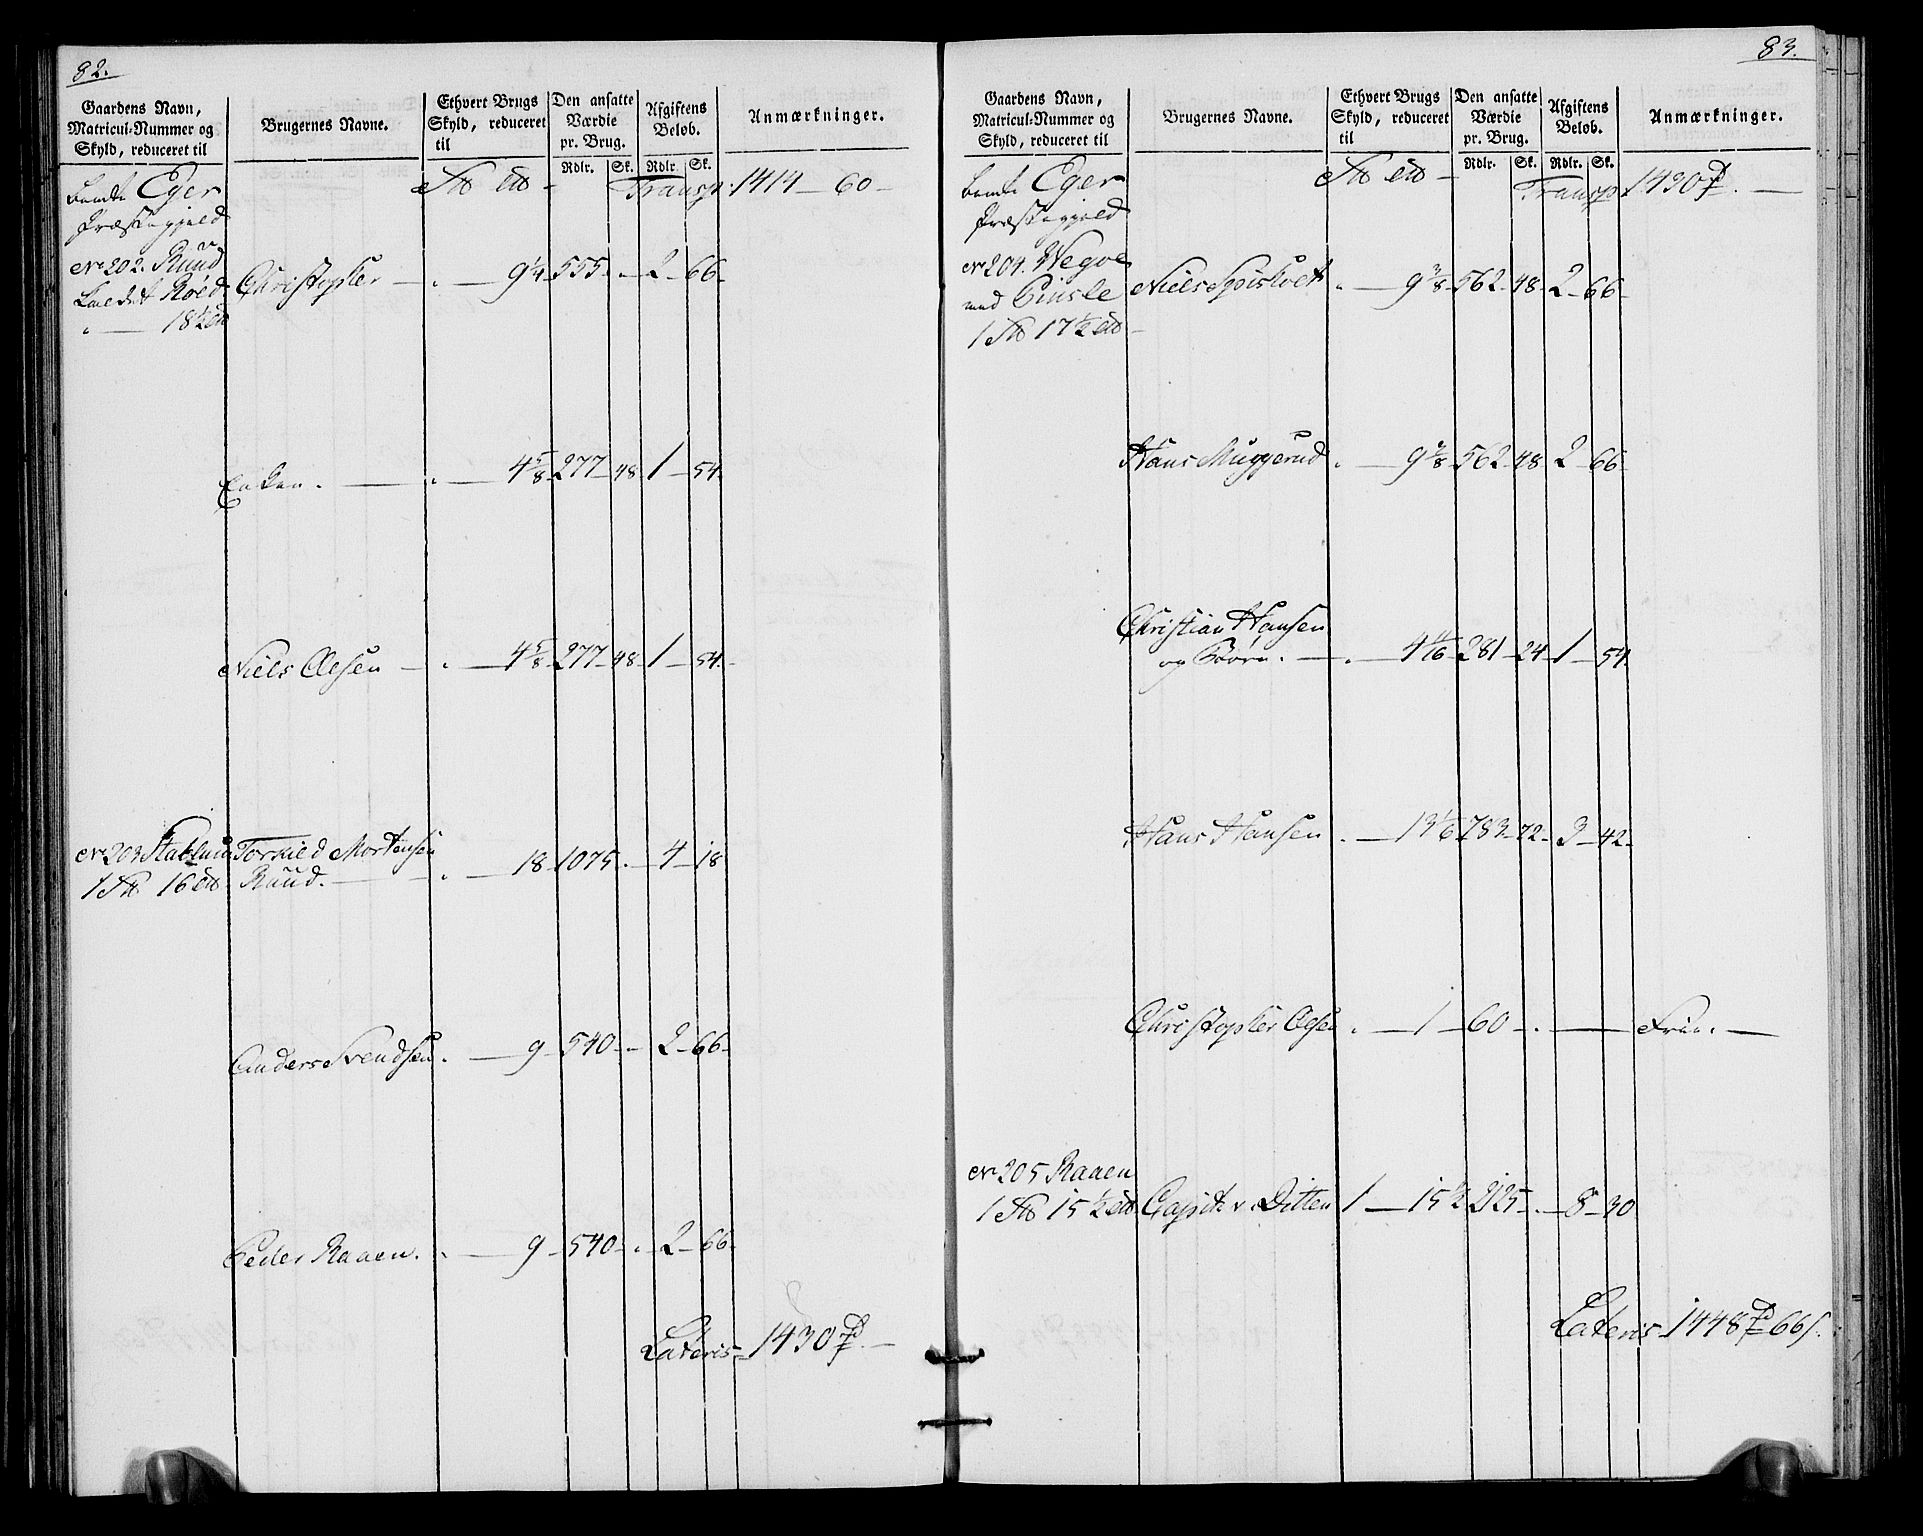 82.
Gaardens Navn, Matricul-Nummer og Skyld, reduceret til
Brugernes Navne.
Ethvert Brugs Skyld, reduceret til
Den ansatte Værdie pr. Brug.
Afgiftens Beløb.
Anmærkninger.
Rdlr. Sk. Rdlr. Sk.
bemte Eger Præstegjeld
Transp. 1414 — 60 —
No 202. Ruud
kaldet Røed
" — 18½
Christopher — " — 9¼ 555 - " - 2 - 66 -
Enken. — " — 4⅝ 277 - 48 - 1 - 54.
Niels Olesen — " — 4⅝ 277 - 48 - 1 - 54 -
No 203
1 16
Torkild Mortensen
Ruud. — " — 18 - 1075 - " - 4 - 18
Anders Svendsen. " — 9 - 540 - " - 2 - 66 -
Peder Raaen. " — 9 - 540 - " - 2 - 66 -
Lateris 1430
83.
Gaardens Navn, Matricul-Nummer og Skyld, reduceret til
Brugernes Navne.
Ethvert Brugs Skyld, reduceret til
Den ansatte Værdie pr. Brug.
Afgiftens Beløb.
Anmærkninger.
Rdlr. Sk. Rdlr. Sk.
bemte Eger Præstegjeld
Transp. 1430
No 204.
med
1 17½
Niels " — 9⅜ 562 - 48 - 2 - 66 -
Hans Muggerud " — 9⅜ 562 - 48 - 2 - 66
Christian Hansen
og — " — 4 11/16 - 281 - 24 - 1 - 54.
Hans Hansen " — 13 1/16 - 783 - 72 - 3 - 42 -
Christopher Olsen " — 1 - 60 - " — Frie. —
No 205 Raaen
1 15½
Capit. v. Ditten 1 — 15½ 2125 - " - 8 - 30
Lateris 1448 66